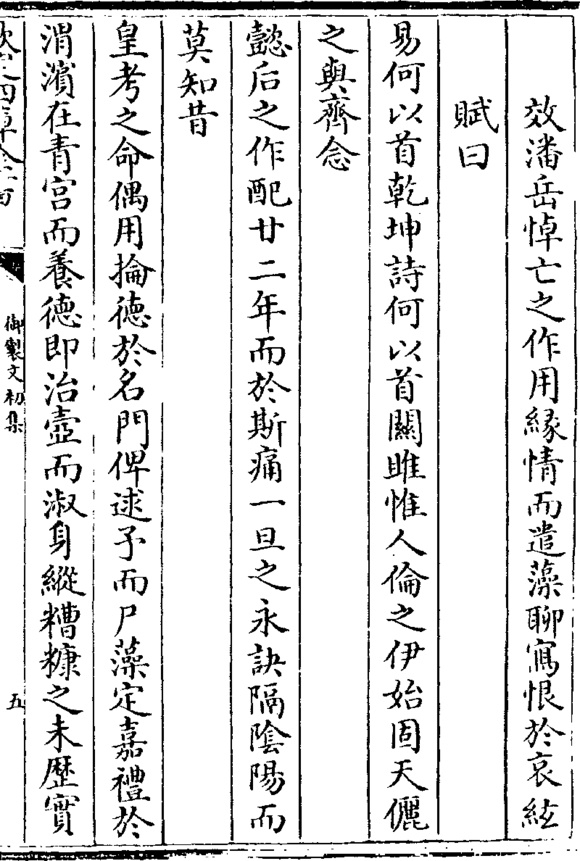 效潘岳悼亡之作用緣情而遣藻聊寫恨於哀絃
賦曰
易何以首乾坤詩何以首關雎惟人倫之伊始固天儷
之與齊念
懿后之作配廿二年而於斯痛一旦之永訣隔陰陽而
莫知昔
皇考之命偶用掄德於名門俾逑予而尸藻定嘉禮於
渭濱在青宮而養德即治壼而淑身縱糟糠之未歷實
欽定四庫全書
御製文初集
五